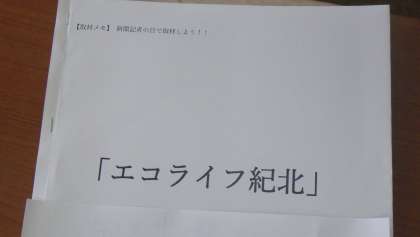 【取材メモ】 新聞記者の目で取材しよう！！
「エコライフ紀北」